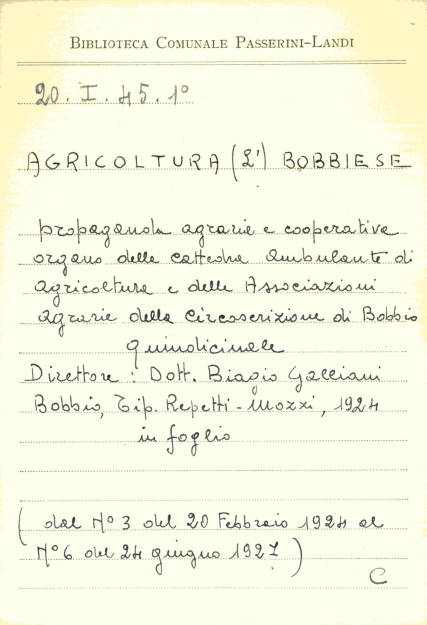 BIBLIOTECA COMUNALE PASSERINI-LANDI
20. I. 45. 1º
AGRICOLTURA (L') BOBBIESE
propaganda agraria e cooperativa
organo della Cattedra Ambulante di
Agricoltura e delle Associazioni
Agrarie della Circoscrizione di Bobbio
Quindicinale
Direttore: Dott. Biagio Galliani
Bobbio, Tip. Repetti-Mozzi, 1924
in foglio
(dal Nº 3 del 20 Febbraio 1924 al
Nº 6 del 24 giugno 1927)
C